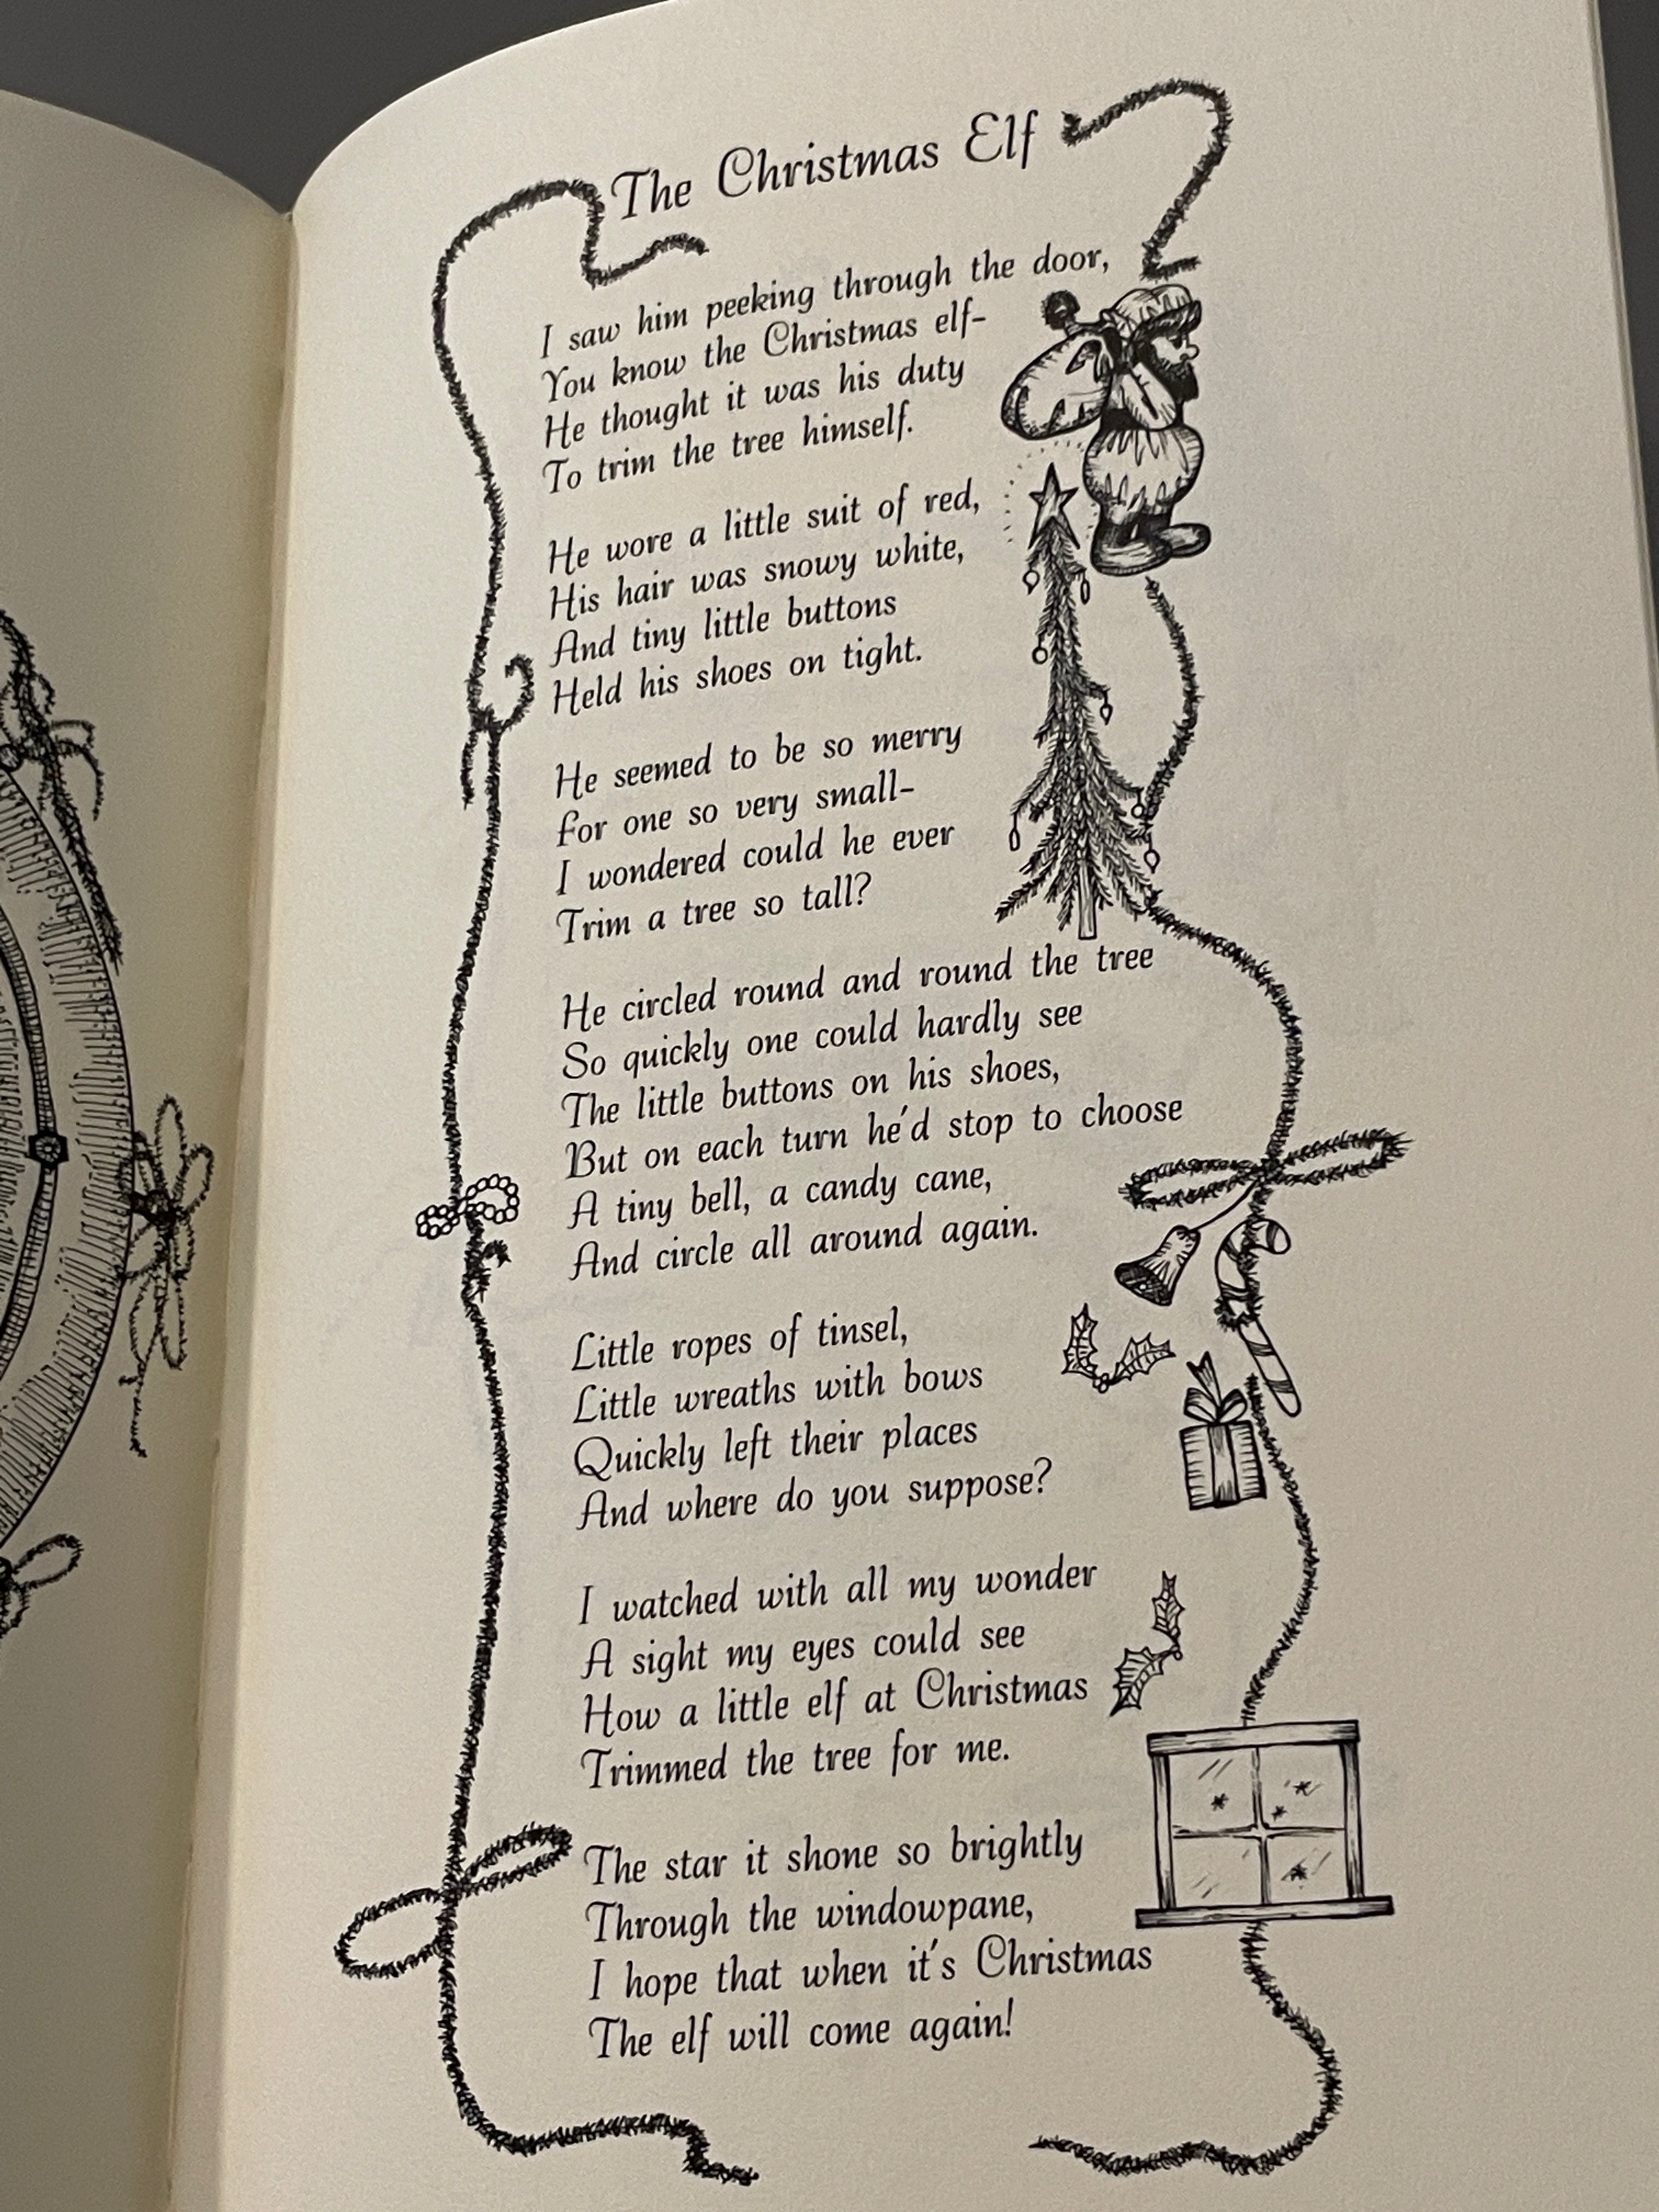 The Christmas Elf
I saw him peeking through the door,
You know the Christmas elf-
He thought it was his duty
To trim the tree himself.
He wore a little suit of red,
His hair was snowy white,
And tiny little buttons
Held his shoes on tight.
He seemed to be so merry
For one so very small-
I wondered could he ever
Trim a tree so tall?
He circled round and round the tree
So quickly one could hardly see
The little buttons on his shoes,
But on each turn he'd stop to choose
A tiny bell, a candy cane,
And circle all around again.
Little ropes of tinsel,
Little wreaths with bows
Quickly left their places
And where do you suppose?
I watched with all my wonder
A sight my eyes could see
How a little elf at Christmas
Trimmed the tree for me.
The star it shone so brightly
Through the windowpane,
I hope that when it's Christmas
The elf will come again!